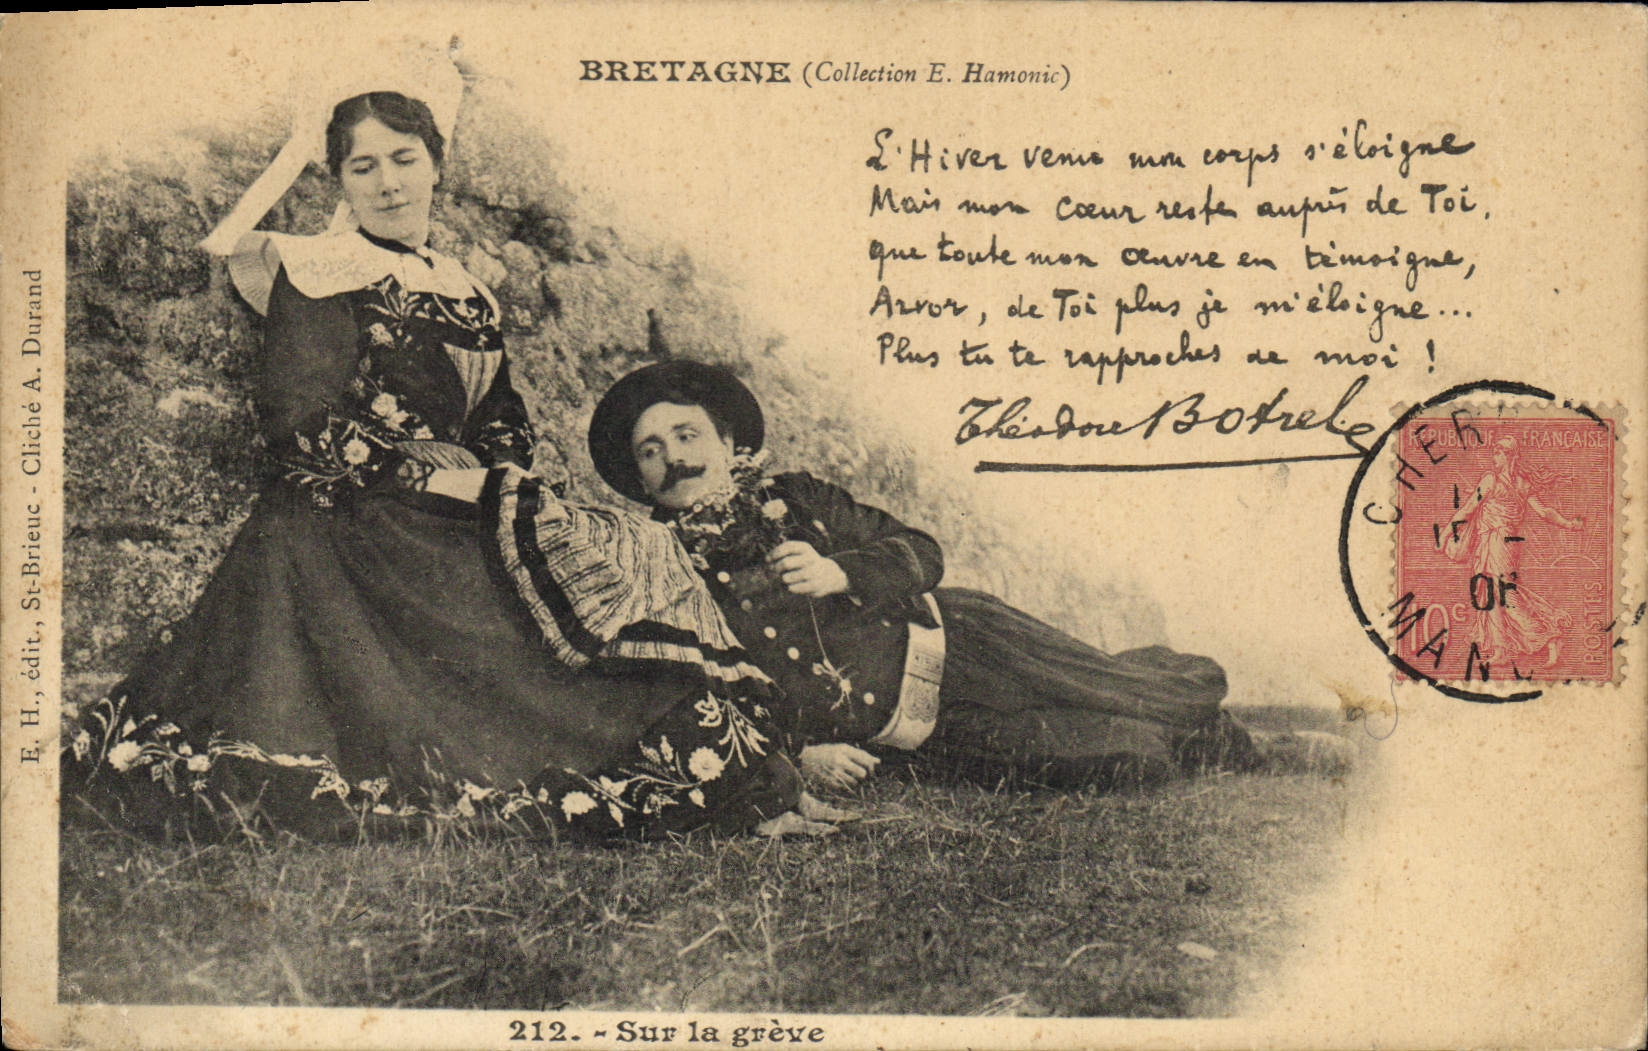 BRETAGNE (Collection E. Hamonic)
L'Hiver venu mon corps s'éloigne
Mais mon cœur reste auprès de Toi,
que toute mon œuvre en témoigne,
Arvor, de Toi plus je m'éloigne...
Plus tu te rapproches de moi !
Théodore Botrel
RÉPUBLIQUE FRANÇAISE
10c
POSTES
CHER
06
MAN
E. H., édit., St-Brieuc - Cliché A. Durand
212. - Sur la grève